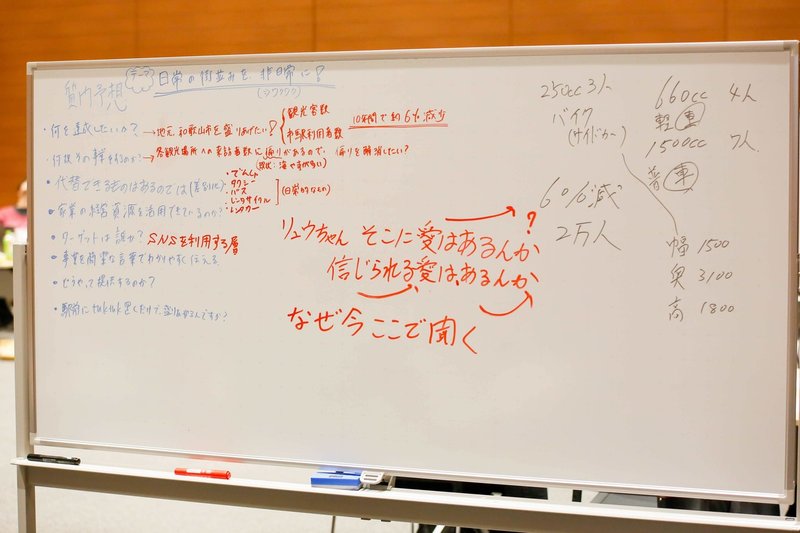 質問予想
テーマ 日常の街並みを、非日常に!
(ワクワク)
・何を達成したいか? → 地元 和歌山市を盛りあげたい?
観光客数
市駅利用者数
10年間で約6%減少
→ 各観光場所への来訪者数に偏りがあるので、偏りを解消したい?
(現状:海や
・代替できるものはあるのでは(差別化)
・でんしゃ
・タクシー
・バス
・レンタサイクル
・レンタカー
(日常的なもの)
・家業の経営資源を活用できているのか?
・ターゲットは誰か? SNSを利用する層
・事業を簡潔な言葉でわかりやすく伝える
・どうやって提供するのか?
・駅前にtuktuk置くだけで、
リュウちゃん そこに愛はあるんか?
信じられる愛は、あるんか
なぜ今ここで聞く
250cc 3人
バイク
(サイドカー)
660cc 4人
軽車
1500cc 7人
普車
6%減
2万人
幅 1500
奥 3100
高 1800